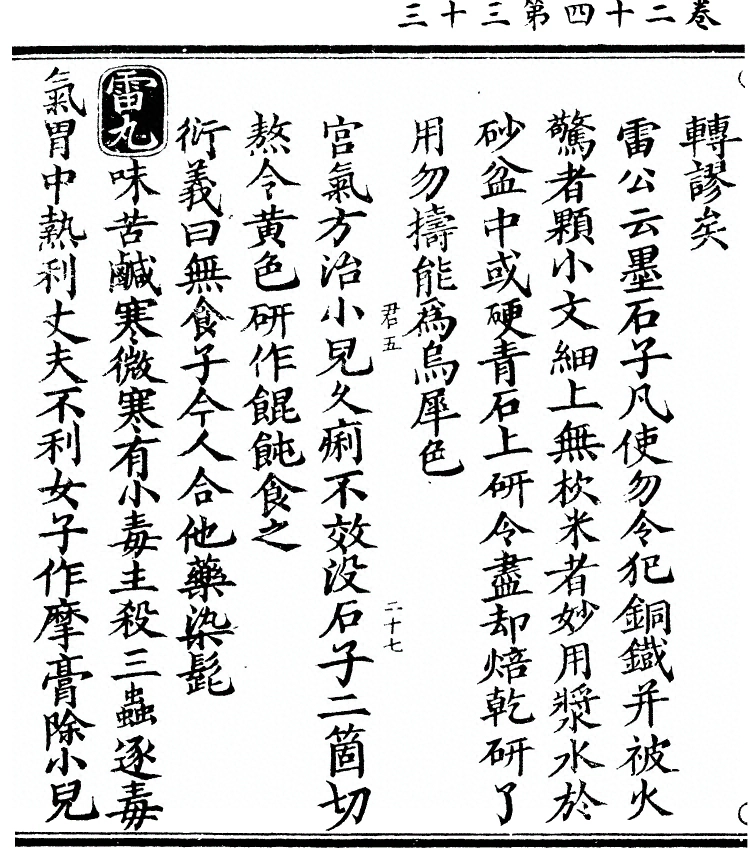 三十三第四十二卷
轉謬矣
雷公云墨石子凡使勿令犯銅鐵并被火
驚者顆小文細上無枕米者妙用漿水於
砂盆中或硬青石上研令盡却焙乾研了
用勿擣能爲烏犀色
君五
二十七
宫氣方治小兒久痢不效没石子二箇切
熬令黄色研作餛飩食之
衍義曰無食子今人合他藥染髭
雷丸味苦鹹寒微寒有小毒主殺三蟲逐毒
氣胃中熱利丈夫不利女子作摩膏除小兒